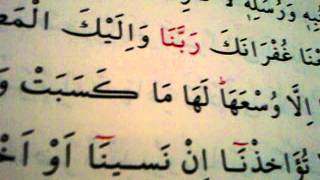 وَرُسُلِهِ
غُفْرَانَكَ رَبَّنَا وَاِلَيْكَ
اِلَّا وُسْعَهَا لَهَا مَا كَسَبَتْ وَ
تُؤَاخِذْنَٓا اِنْ نَسٖينَٓا اَوْ